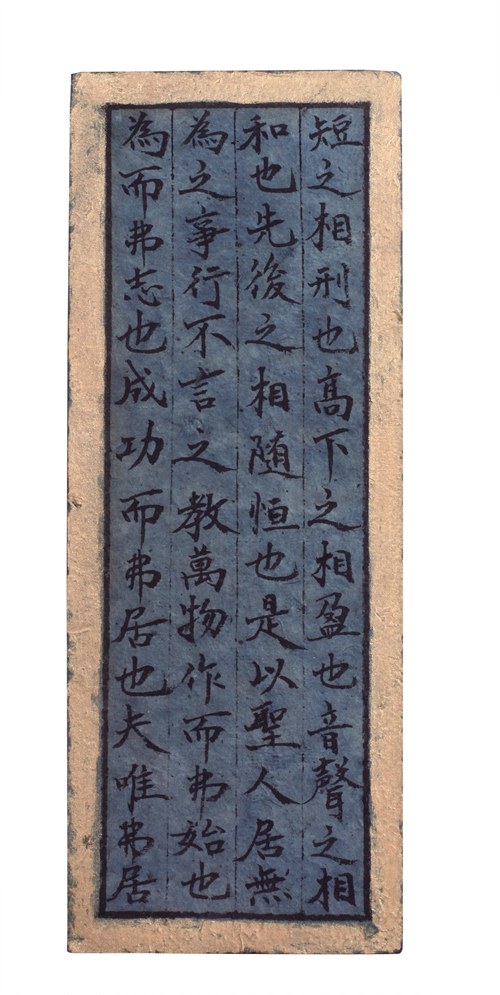 短之相刑也高下之相盈也音聲之相
和也先後之相随恒也是以聖人居無
為之事行不言之教萬物作而弗始也
為而弗志也成功而弗居也夫唯弗居